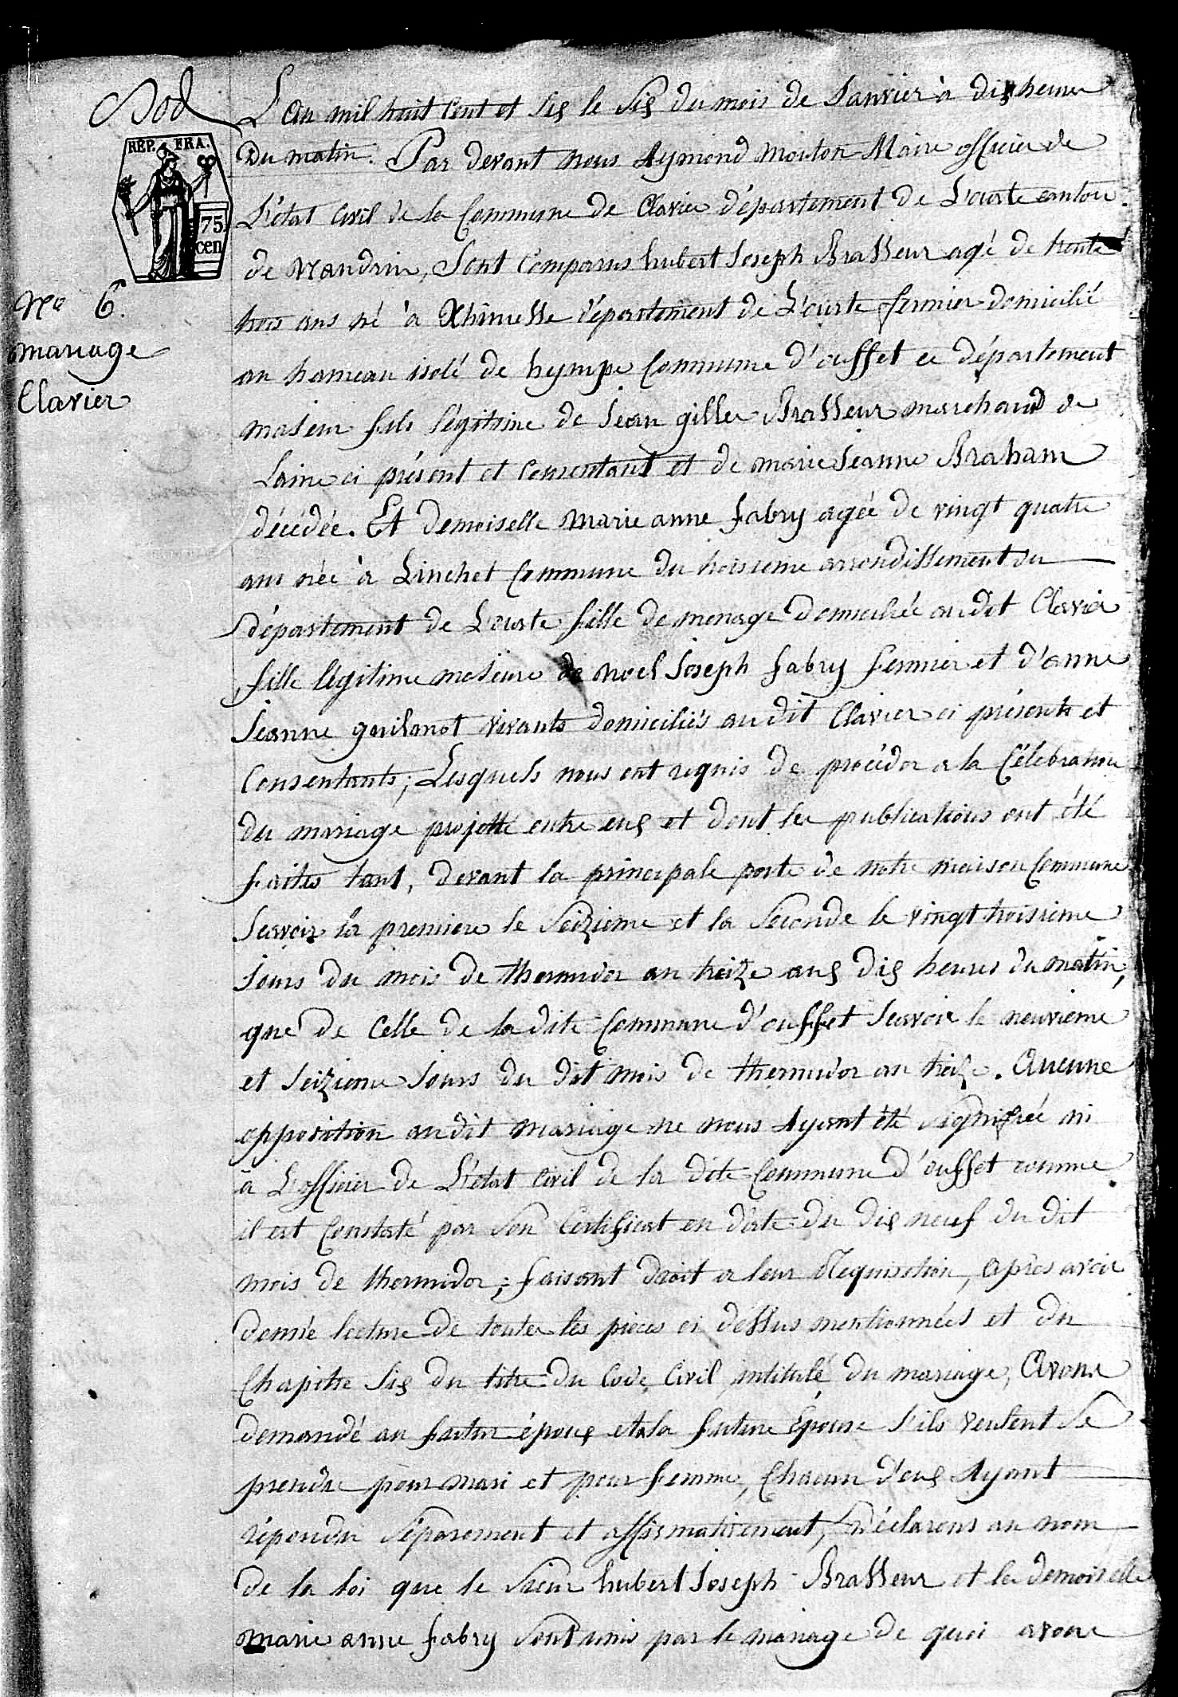 REP. FRA.
75
cen
No 6.
mariage
Clavier
L'an mil huit Cent et Six le Six du mois de Janvier à dix heures
du matin. Par devant nous Aymond Mouton Maire officier de
L'état Civil de la Commune de Clavier département de L'ourte canton
de Nandrin, Sont Comparus hubert Joseph Brasseur agé de trente
trois ans né à Xhinesse département de L'ourte fermier domicilié
au hameau isolé de hympe Commune d'ouffet ce département
majeur fils légitime de Jean gille Brasseur marchand de
Laine ci présent et consentant et de marie Jeanne Braham
décédée. Et demoiselle marie anne fabry agée de vingt quatre
ans née à Linchet Commune du troisieme arrondissement du
département de L'ourte fille de menage domiciliée audit Clavier
fille légitime majeure de noel Joseph fabry fermier et d'anne
Jeanne vivants domiciliés au dit Clavier ci présents et
Consentants; Lesquels nous ont requis de procéder a la Célébration
du mariage projetté entre eux et dont les publications ont été
faites tant, devant la principale porte de notre maison Commune
Scavoir la premiere le Seizieme et la Seconde le vingt troisieme
Jours du mois de thermidor an treize aux dix heures du matin,
que de Celle de la dite Commune d'ouffet Scavoir le neuvieme
et Seizieme Jours du dit mois de thermidor an treize. Aucune
opposition audit mariage ne nous Ayant été signifiée ni
à L'officier de L'état Civil de la dite Commune d'ouffet comme
il est Constaté par Son Certificat en date du dix neuf du dit
mois de thermidor; faisant droit a leur Requisition, après avoir
donné lecture de toutes les pieces ci dessus mentionnées et du
Chapitre Six du titre du Code Civil intitulé du mariage, Avons
demandé au futur époux et a la future Epouse S'ils veulent Se
prendre pour mari et pour femme, Chacun d'eux Ayant
répondu Séparement et affirmativement, Déclarons au nom
de la loi que le Sieur hubert Joseph Brasseur et la demoiselle
marie anne fabry Sont unis par le mariage de quoi avons